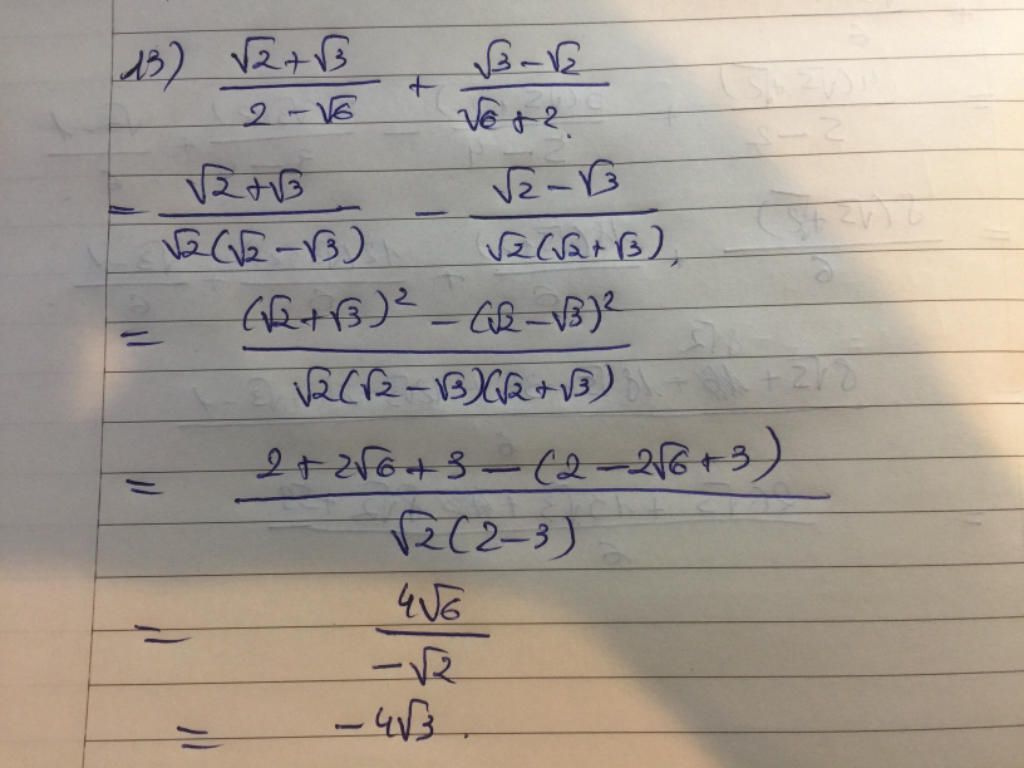 13) (√2+√3)/(2-√6) + (√3-√2)/(√6+2).
= (√2+√3)/(√2(√2-√3)) - (√2-√3)/(√2(√2+√3)),
= ((√2+√3)² - (√2-√3)²)/(√2(√2-√3)(√2+√3))
= (2+2√6+3-(2-2√6+3))/(√2(2-3))
= (4√6)/(-√2)
= -4√3.